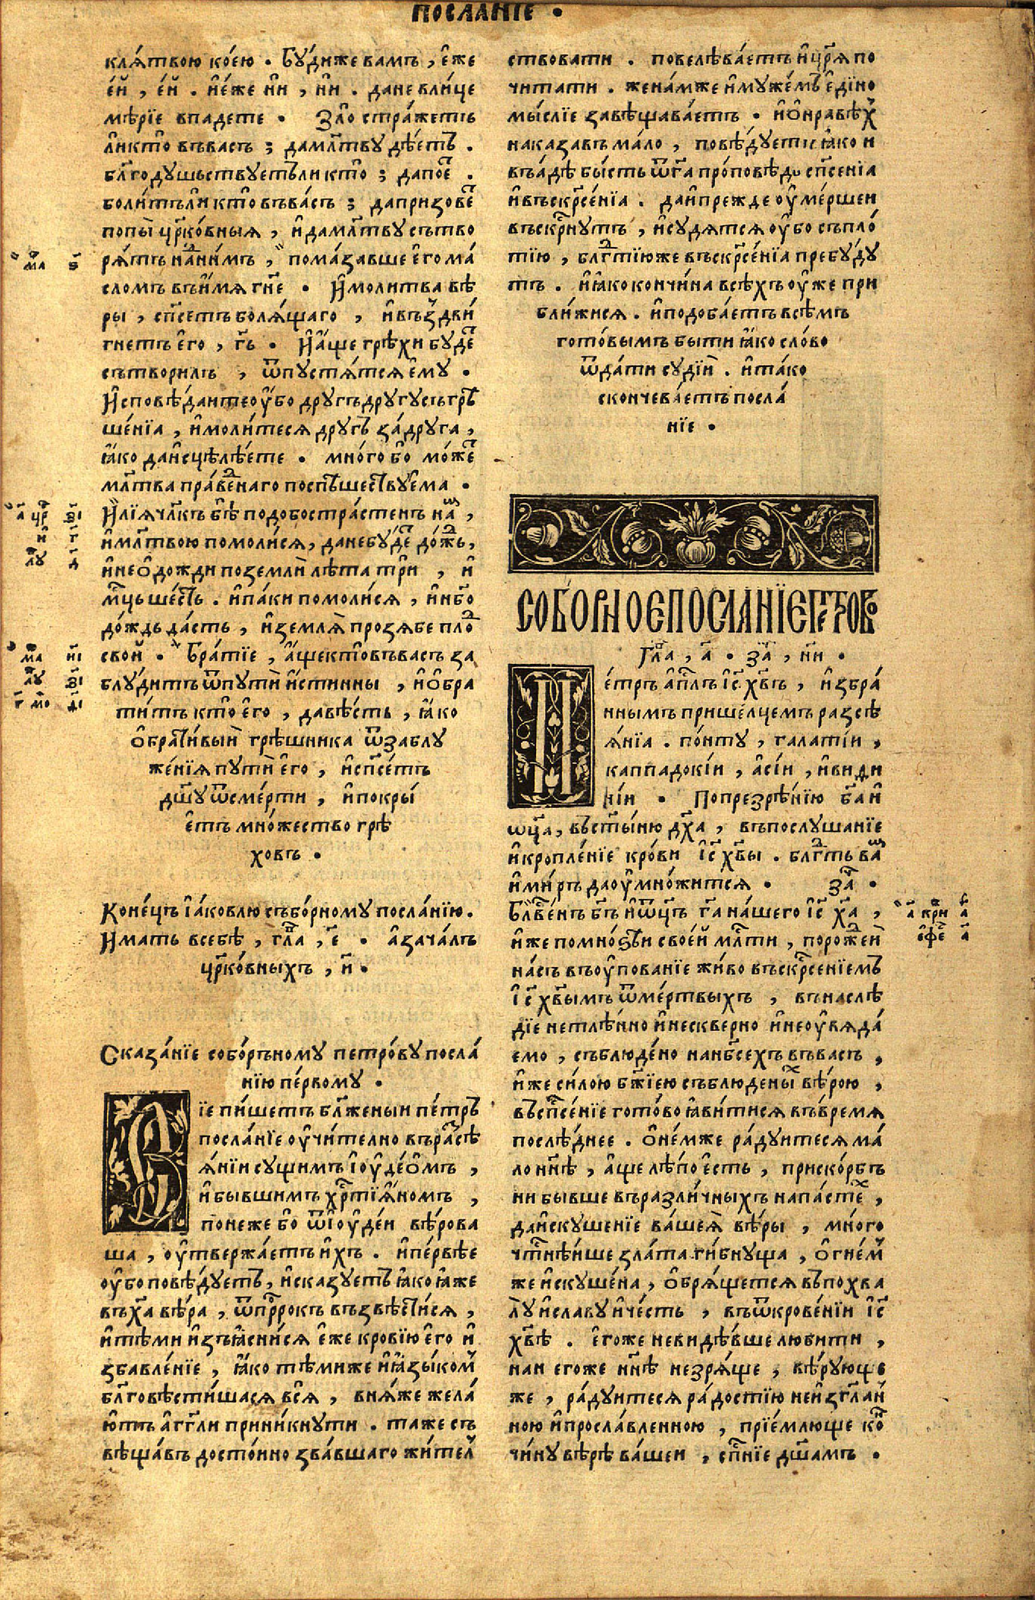 ПОСЛАНІЕ •
клѧ́твою ко́ею . Бу́диже вамъ , є҆же
є҆й , є҆й . и҆є́же ни , ни . дане влице
мѣ́рїе впадете • Зло стра́жетъ
ли кто въвасъ ; дамл҃тву дѣ́етъ .
бл҃годушьствуетъ ли кто ; дапое .
боли́тъ ли кто въва́съ ; дапризове
попы цр҃ко́вныѧ , и҆дамл҃тву сътво
рѧ́тъ нани́мъ , пома́завше є҆го ма
сломъ въи҆мѧ гн҃е • И҆молитва вѣ
ры , сп҃сетъ болѧ́щаго , и҆въздви
гнетъ є҆го , гь • И҆а҆ще грѣхи буде
сътворилъ , ѿпустѧ́тсѧ є҆му •
И҆сповѣ́даите оу҆бо другъ другу съгрѣ
ше́нїа , и҆моли́тесѧ другъ за́друга ,
ꙗ҆ко даи҆сцѣлѣ́ете • мно́го бо мо́же
мл҃тва пра́веднаго поспѣшествуема •
И҆лїѧ чл҃къ бѣ подобостра́стенъ на ,
и҆мл҃твою помоли́сѧ , данебуде до́ждь ,
и҆нео҆дожди поземли лѣ́та три , и҆
мц҃ь шесть . и҆па́ки помоли́сѧ , и҆нб҃о
до́ждь да́сть , и҆землѧ прозѧбе пло
свой • Бра́тїе , а҆ще кто въва́съ за
блу́дитъ ѿпути и҆́стинны , и҆о҆бра
ти́тъ кто є҆го , давѣ́сть , ꙗ҆ко
о҆брати́вый грѣшника ѿзаблу
же́нїѧ пути є҆го , и҆сп҃се́тъ
дш҃у ѿсме́рти , и҆покры́
є҆тъ мно́жество грѣ
ховъ •
Коне́цъ і҆а́ковлю събо́рному посла́нїю .
И҆мать всебѣ , гла , є • а҆зача́лъ
цр҃ко́вныхъ , и •
Сказа́нїе собо́рьному петро́ву посла́
нїю пе́рвому •
Сїе пи́шетъ бл҃же́ныи пе́тръ
посла́нїе оу҆чи́телно въра́сѣ
ѧ́нїи сущимъ і҆оуде́омъ ,
и҆бы́вшимъ хр҃тїѧ́номъ ,
поне́же бо ѿі҆оуде́и вѣ́рова
ша , оу҆твержа́етъ и҆хъ . и҆пе́рвѣе
оу҆бо повѣ́дуетъ , и҆сказуетъ ꙗ҆ко ꙗ҆же
въха вѣ́ра , ѿпррокъ възвѣсти́сѧ ,
и҆тѣми и҆зъꙗ҆сни́сѧ є҆же кро́вїю є҆го и҆
збавле́нїе , ꙗ҆ко тѣмиже и҆ꙗ҆зы́комъ
бл҃говѣсти́шасѧ всѧ , внѧ́же жела́
ютъ а҆гг҃ли прини́кнути . та́же съ
вѣща́въ досто́йно зва́вшаго жите́л
ствовати . повелѣва́етъ и҆цр҃ѧ по
чита́ти . жена́мже и҆муже́мъ є҆ди́но
мы́слїе завѣщава́етъ • и҆о҆нравѣ
наказа́въ ма́ло , повѣ́дуетъ ꙗ҆ко и
въа́дѣ бы́сть ѿга про́повѣдь сп҃се́нїа
и҆въскр҃се́нїа . даи҆пре́жде оу҆ме́ршеи
въскр҃нутъ , и҆су́дѧтсѧ оу҆бо съпло́
тїю , бл҃гтїюже въскр҃се́нїа пребу́ду
тъ . и҆ꙗ҆ко кончи́на всѣ́хъ оу҆́же при
бли́жисѧ . и҆подоба́етъ всѣ́мъ
гото́вымъ бы́ти ꙗ҆ко сло́во
ѿда́ти судїи . и҆та́ко
сконче́ваетъ посла́
нїе •
СОБОРНОЕ ПОСЛАНЇЕ ПЕТРОВО
Гла , а҃ • за , ни •
Пе́тръ а҆пл҃ъ і҆с хвъ , и҆збра́
ннымъ прише́лцемъ разсѣ
ѧ́нїа . по́нту , гала́тїи ,
каппадокі́и , а҆сі́и , и҆види
ні́и • По прозрѣ́нїю ба и҆
ѡц҃а , въст҃ы́ню дх҃а , въпослуша́нїе
и҆кропле́нїе кро́ви і҆с хвы . бл҃гть ва
и҆ми́ръ даоу҆мно́житсѧ • за •
Бл҃ве́нъ бг҃ъ и҆ѡц҃ъ га на́шего і҆с ха ,
и҆́же помно́ѕѣи свое́й мл҃ти , поро́жей
на́съ въоу҆пова́нїе жи́во въскр҃се́нїемъ
і҆с хвымъ ѿме́ртвыхъ , вънаслѣ́
дїе нетлѣ́нно и҆нескве́рно и҆неоу҆вѧда́
емо , съблюде́но нанб҃сехъ въва́съ ,
и҆́же си́лою бж҃їею съблюдены вѣ́рою ,
въсп҃се́нїе гото́во ꙗ҆ви́тисѧ въвре́мѧ
послѣ́днее . о҆не́мже ра́дуитесѧ ма́
ло нн҃ѣ , а҆ще лѣ́по є҆сть , приско́рбъ
ни бы́вше въразли́чныхъ напа́сте ,
даи҆скуше́нїе ва́шеѧ вѣ́ры , мно́го
чт҃нѣ́ише зла́та ги́бнуща , о҆гне́мъ
же и҆скуше́на , о҆брѧ́щетсѧ въпохва
лу и҆сла́ву и҆че́сть , въѿкрове́нїи і҆с
хвѣ . є҆го́же неви́дѣвше лю́бити ,
нан є҆го́же нн҃ѣ незрѧ́ще , вѣ́рующе
же , ра́дуитесѧ ра́достїю неи҆згл҃ан
ною и҆просла́вленною , прїе́млюще ко
чи́ну вѣ́рѣ ва́шеи , сп҃нїе дш҃а́мъ •